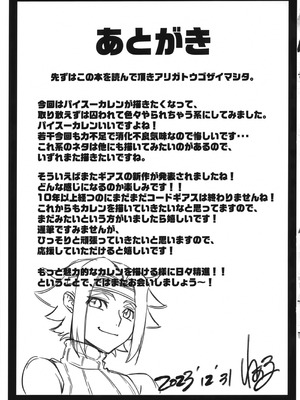 あとがき
先ずはこの本を読んで頂きアリガトウゴザイマシタ。
今回はパイスーカレンが描きたくなって、
取り敢えずは囚われて色々やられちゃう系にしてみました。
パイスーカレンいいですよね！
若干今回も力不足で消化不良気味なので悔しいです・・・
これ系のネタは他にも描いてみたいのがあるので、
いずれまた描きたいですね。
そういえばまたギアスの新作が発表されましたね！
どんな感じになるのか楽しみです！！
10年以上経つのにまだまだコードギアスは終わりませんね！
これからもカレンを描いていきたいなと思ってますので、
まだみたいという方がいましたら嬉しいです！
遅筆ですみませんが、
ひっそりと頑張っていきたいと思いますので、
応援していただけると嬉しいです！
もっと魅力的なカレンを描ける様に日々精進！！
ということで、ではまたお会いしましょう〜！
2023' 12' 31